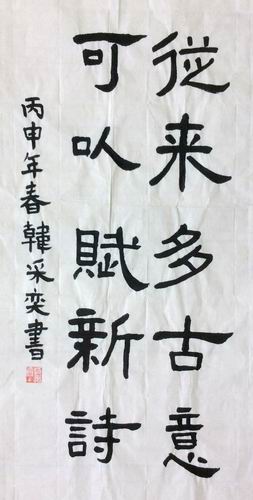 従来多古意
可以賦新詩
丙申年春韓采奕書